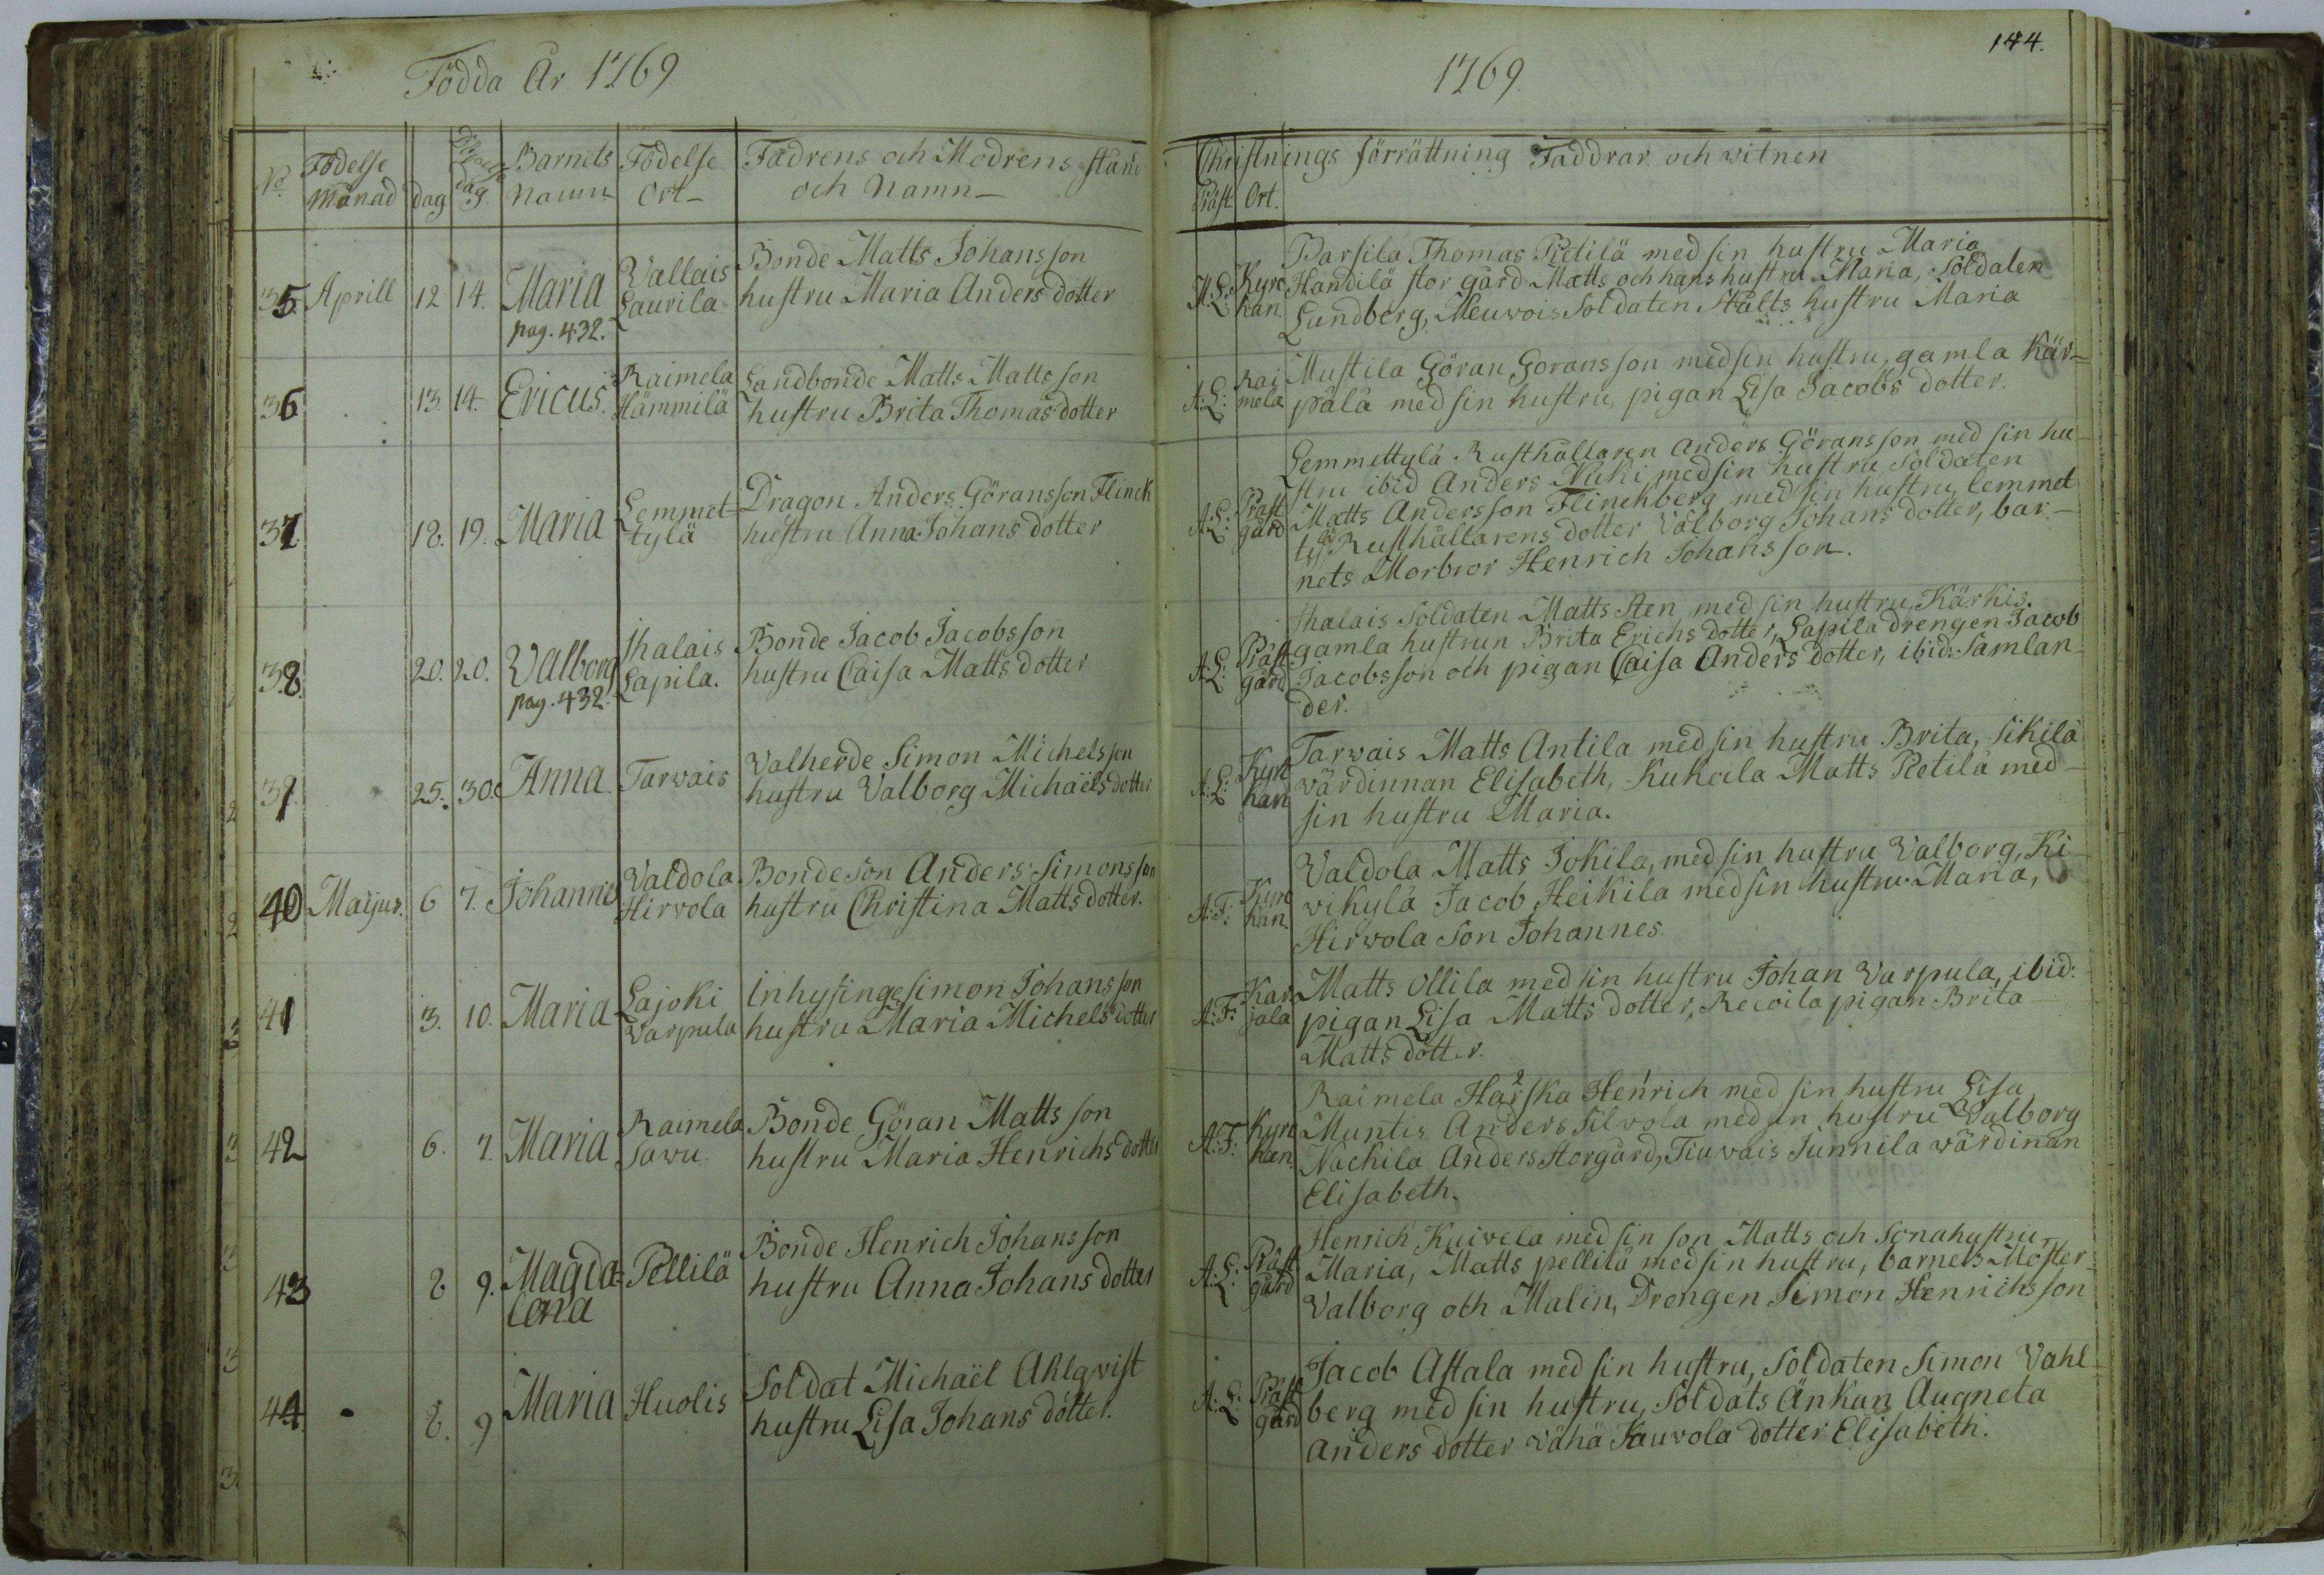 Födda År 1769
No Födelse Månad dag Döpelse dag Barnets Namn Födelse Ort Fadrens och Modrens stånd och Namn
35. Aprill 12 14. Maria pag. 432. Vallais Laurila Bonde Matts Johansson
hustru Maria Anders dotter
36 13. 14. Ericus. Raimela Hämmilä Landbonde Matts Mattsson
hustru Brita Thomas dotter
37 18. 19. Maria Lemmet-
tylä Dragon Anders Göransson Flinck
hustru Anna Johans dotter
38. 20. 20. Valborg pag. 432. Ihalais Lapila. Bonde Jacob Jacobsson
hustru Caisa Matts dotter
39 25. 30. Anna Tarwais Valherde Simon Michelsson
hustru Valborg Michaëls dotter
40 Maijus. 6 7. Johannes Valdola Hirvola Bondeson Anders Simonsson
hustru Christina Matts dotter.
41 3. 10. Maria Lajoki Varpula Inhysinge Simon Johansson
hustru Maria Michels dotter
42 6. 7. Maria Raimela Sawu Bonde Göran Mattsson
hustru Maria Henrichs dotter
43 8 9. Magda-
lena Pellilä Bonde Henrich Johansson
hustru Anna Johans dotter
44. 8. 9 Maria Huolis Soldat Michaël Ahlqvist
hustru Lisa Johans dotter.
144.
1769.
Christnings förrättning Faddrar och witnen
Präst Ort.
A: L: Kyrc
kan. Parsila Thomas Pietilä med sin hustru Maria
Handilä stor gård Matts och hans hustru Maria, Soldaten
Lundberg, Meuwois Soldaten Stålts hustru Maria
A: L: Rai
mela Mustila Göran Goransson med sin hustru, gamla Kär-
pälä med sin hustru, pigan Lisa Jacobs dotter.
A: L: Präst
gård Lemmettylä Rusthållaren Anders Göransson med sin hu-
stru ibid Anders Kuki med sin hustru Soldaten
Matts Andersson Flinchberg med sin hustru, lemmet
tylä Rusthållarens dotter Valborg Johans dotter, bar-
nets Morbror Henrich Johansson.
A: L: Präst
gård Ihalais Soldaten Matts Sten med sin hustru, Kärkis.
gamla hustrun Brita Erichs dotter, Lapila drengen Jacob
Jacobsson och pigan Caisa Anders dotter, ibid: Samlan-
der.
A: L: Kyrc
kan Tarwais Matts Antila med sin hustru Brita, Sikilä
wärdinnan Elisabeth, Kukola Matts Pietilä med
sin hustru Maria.
A: F: Kyrc
kan. Valdola Matts Jokila, med sin hustru Valborg, Ki-
vikylä Jacob Heikila med sin hustru Maria,
Hirvola Son Johannes.
A: F: Kar
jala Matts Ollila med sin hustru Johan Varpula, ibid:
pigan Lisa Matts dotter, Recoila pigan Brita
Matts dotter.
A: F: Kyrc
kan Raimela Harska Henrich med sin hustru Lisa
Muntis Anders Silvola med sin hustru Valborg
Nackila Anders Storgård, Tiuvais Junnila wärdinan
Elisabeth.
A: L: Präst
gård Henrich Kuivela med sin son Matts och Sonahustru
Maria, Matts pellilä med sin hustru, barnets Moster
Valborg och Malin, Drengen Simon Henrichsson
A: L: Präst
gård Jacob Astala med sin hustru, Soldaten Simon Vahl
berg med sin hustru, Soldats Änkan Augneta
Anders dotter Vähä Kauvola dotter Elisabeth.